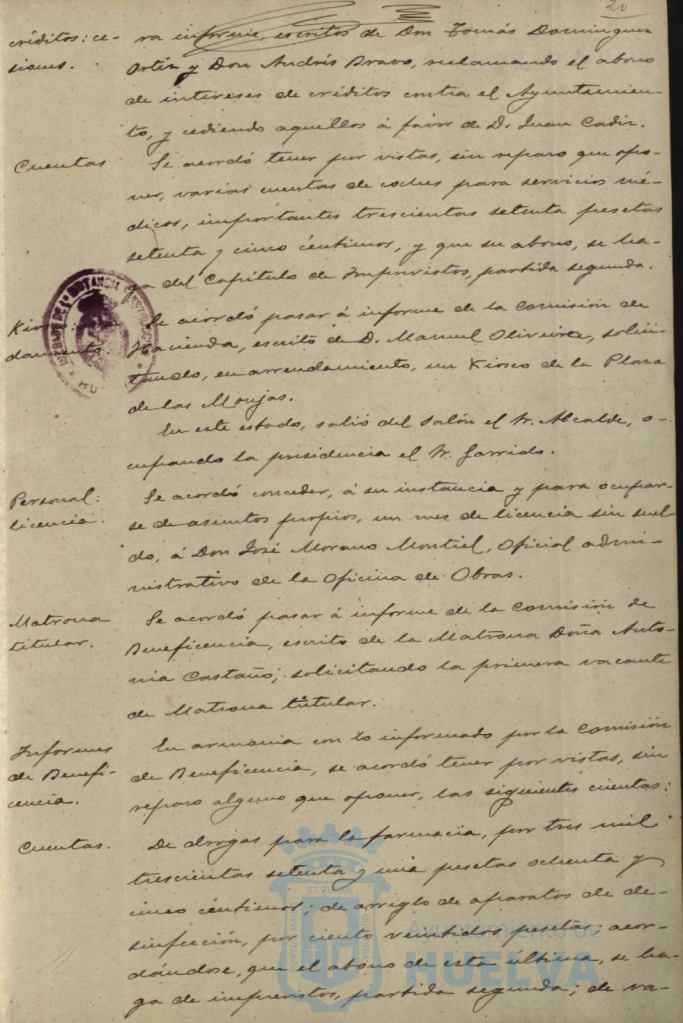 20
créditos: ce-
siones.
ra informe, escritos de Don Tomás Domínguez
Ortiz y Don Andrés Bravo, reclamando el abono
de intereses de créditos contra el Ayuntamien-
to, y cediendo aquellos á favor de D. Juan Cadiz.
Cuentas
Se acordó tener por vistas, sin reparo que opo-
ner, varias cuentas de coches para servicios mé-
dicos, importantes trescientas setenta pesetas
setenta y cinco céntimos, y que su abono, se ha-
ga del Capítulo de Imprevistos, partida segunda.
Se acordó pasar á informe de la Comisión de
Hacienda, escrito de D. Manuel Oliveira, solici-
tando, en arrendamiento, un Kiosco de la Plaza
de las Monjas.
En este estado, salió del Salón el Sr. Alcalde, o-
cupando la presidencia el Sr. Garrido.
Personal:
licencia.
Se acordó conceder, á su instancia y para ocupar-
se de asuntos propios, un mes de licencia sin suel-
do, á Don José Morano Montiel, Oficial admi-
nistrativo de la Oficina de Obras.
Matrona
titular.
Se acordó pasar á informe de la Comisión de
Beneficencia, escrito de la Matrona Doña Anto-
nia Castaño; solicitando la primera vacante
de Matrona titular.
Informes
de Benefi-
cencia.
En armonia con lo informado por la Comisión
de Beneficencia, se acordó tener por vistas, sin
reparo alguno que oponer, las siguientes cuentas:
Cuentas.
De drogas para la farmacia, por tres mil
trescientas setenta y una pesetas ochenta y
cinco céntimos; de arreglo de aparatos de de-
sinfección, por ciento veintidos pesetas, acor-
dándose, que el abono de esta última, se ha-
ga de imprevistos, partida segunda; de va-
Ayuntamiento de
HUELVA